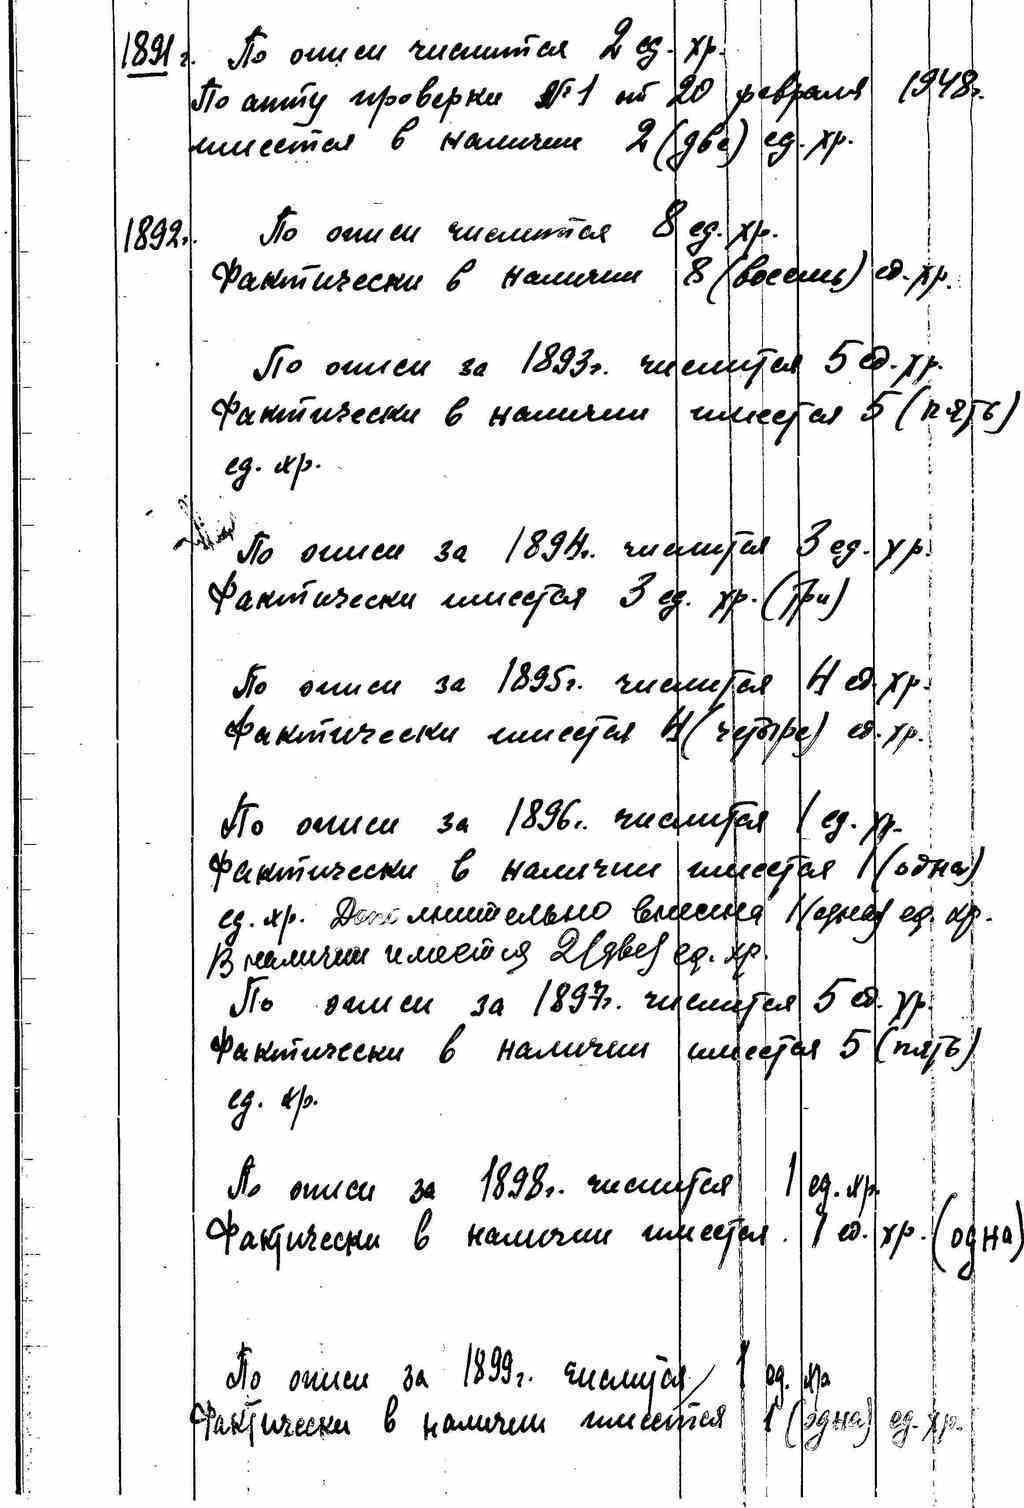 1891 г. По описи числится 2 ед. хр.
По акту проверки № 1 от 20 февраля 1948г.
имеется в наличии 2 (две) ед. хр.
1892г. По описи числится 8 ед. хр.
Фактически в наличии 8 (восемь) ед. хр.
По описи за 1893г. числится 5 ед. хр.
Фактически в наличии имеется 5 (пять)
ед. хр.
По описи за 1894г. числится 3 ед. хр.
Фактически имеется 3 ед. хр. (три)
По описи за 1895г. числится 4 ед. хр.
Фактически имеется 4 (четыре) ед. хр.
По описи за 1896г. числится 1 ед. хр.
Фактически в наличии имеется 1 (одна)
ед. хр. Дополнительно внесена 1 (одна) ед. хр.
В наличии имеется 2 (две) ед. хр.
По описи за 1897г. числится 5 ед. хр.
Фактически в наличии имеется 5 (пять)
ед. хр.
По описи за 1898г. числится 1 ед. хр.
Фактически в наличии имеется 1 ед. хр. (одна)
По описи за 1899г. числится 1 ед. хр
Фактически в наличии имеется 1 (одна) ед. хр.